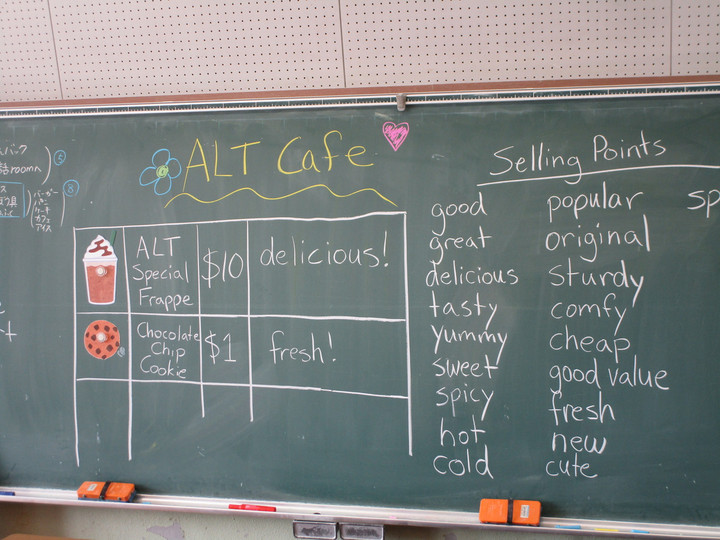 ALT Cafe
ALT
Special
Frappe
$10
delicious!
Chocolate
Chip
Cookie
$1
fresh!
Selling Points
good
great
delicious
tasty
yummy
sweet
spicy
hot
cold
popular
original
sturdy
comfy
cheap
good value
fresh
new
cute
sp
roomへ
バーガー
カフェ
アイス